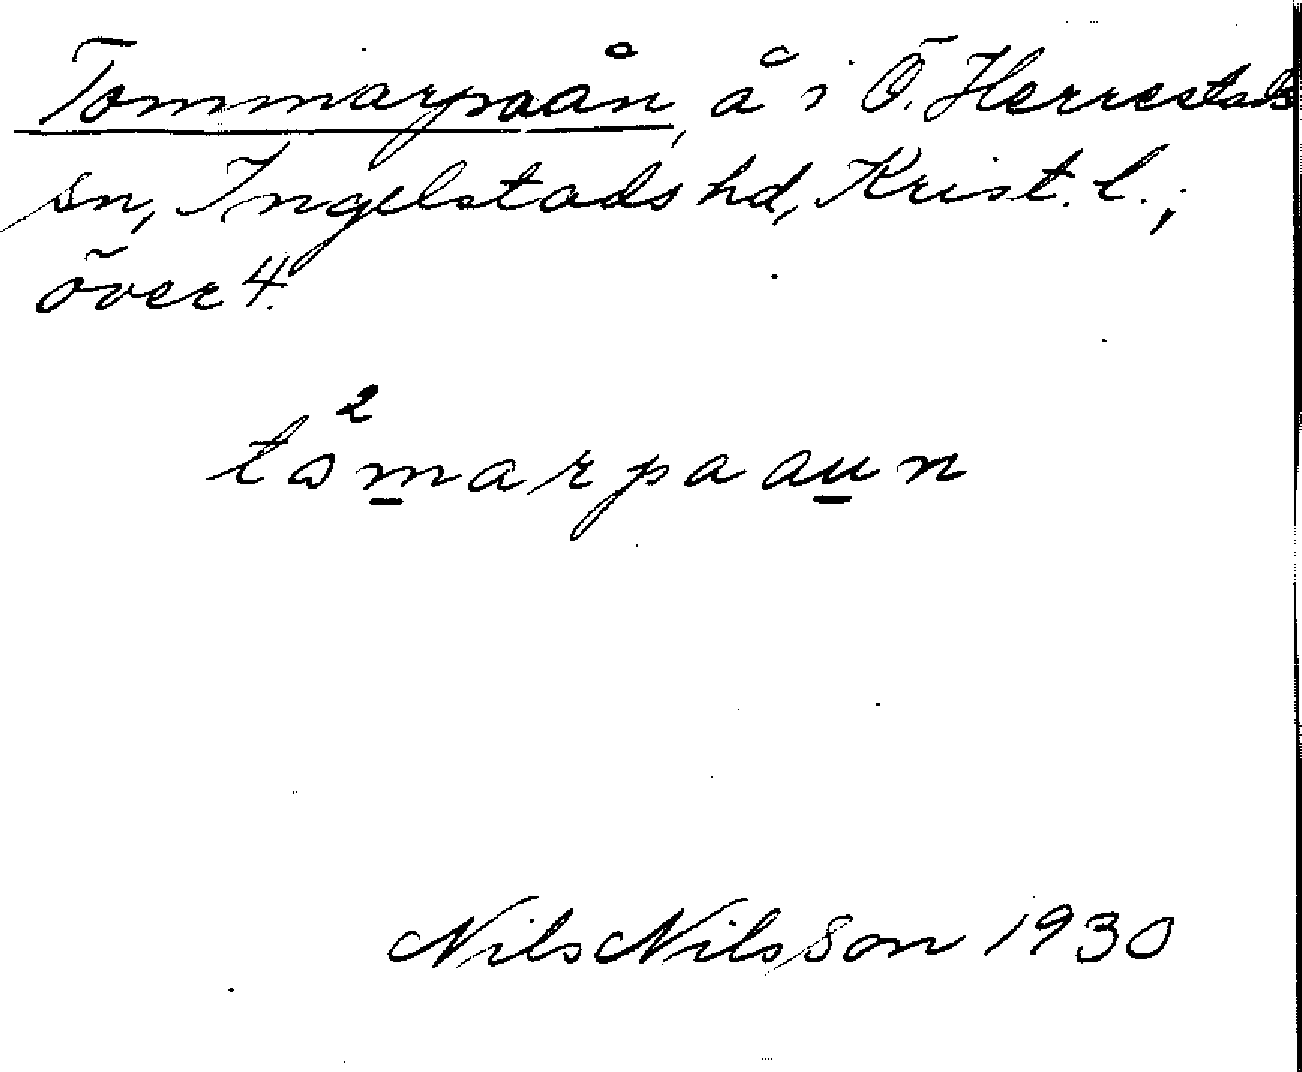 Tommarpaån, å i Ö. Herrestads
sn, Ingelstads hd, Krist. l.,
över 4.
2
tomarpaaun
Nils Nilsson 1930